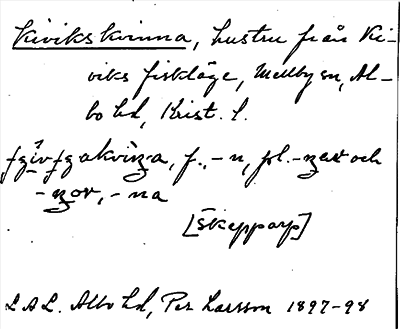 Kivikskvinna, hustru från Ki-
viks fiskläge, Mellby sn, Al-
bo hd, Krist. l.
f., -n, pl. -ɲar och
-ɲor, -na
[Skepparp]
LAL. Albo hd, Per Larsson 1897-98